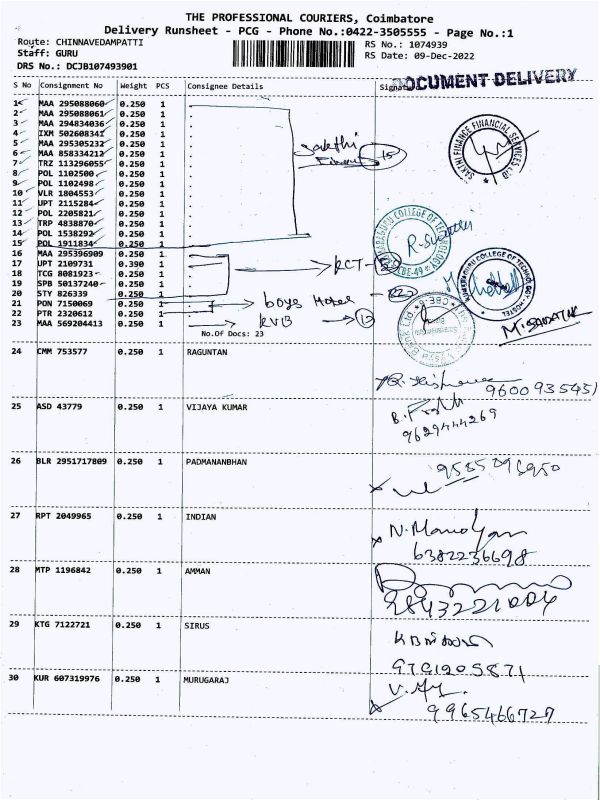 THE PROFESSIONAL COURIERS, Coimbatore
Delivery Runsheet - PCG - Phone No.:0422-3505555 - Page No.:1
Route: CHINNAVEDAMPATTI RS No.: 1074939
Staff: GURU RS Date: 09-Dec-2022
DRS No.: DCJB107493901
DOCUMENT DELIVERY
S No Consignment No Weight PCS Consignee Details Signature
1 MAA 295088060 0.250 1 .
2 MAA 295088061 0.250 1 .
3 MAA 294834036 0.250 1 .
4 IXM 502608341 0.250 1 .
5 MAA 295305232 0.250 1 .
6 MAA 858334212 0.250 1 .
7 TRZ 113296055 0.250 1 .
8 POL 1102500 0.250 1 .
9 POL 1102498 0.250 1 .
10 VLR 1804553 0.250 1 .
11 UPT 2115284 0.250 1 .
12 POL 2205821 0.250 1 .
13 TRP 4838870 0.250 1 .
14 POL 1538292 0.250 1 .
15 POL 1911834 0.250 1 .
Sakthi
Finance 15
SAKTHI FINANCE FINANCIAL SERVICES LTD
16 MAA 295396909 0.250 1 .
17 UPT 2109731 0.390 1 .
18 TCG 8081923 0.250 1 .
19 SPB 50137240 0.250 1 .
20 STY 826339 0.250 1 .
21 PON 7150069 0.250 1 .
22 PTR 2320612 0.250 1 .
23 MAA 569204413 0.250 1 .
KCT
boys Hostel
KVB
COLLEGE OF TECHNOLOGY
CBE-49
KUMARAGURU COLLEGE OF TECHNOLOGY - HOSTEL
No.Of Docs: 23
24 CMM 753577 0.250 1 RAGUNTAN
25 ASD 43779 0.250 1 VIJAYA KUMAR
9629444269
26 BLR 2951717809 0.250 1 PADMANANBHAN
27 RPT 2049965 0.250 1 INDIAN
6382236698
28 MTP 1196842 0.250 1 AMMAN
29 KTG 7122721 0.250 1 SIRUS
30 KUR 607319976 0.250 1 MURUGARAJ
9965466727